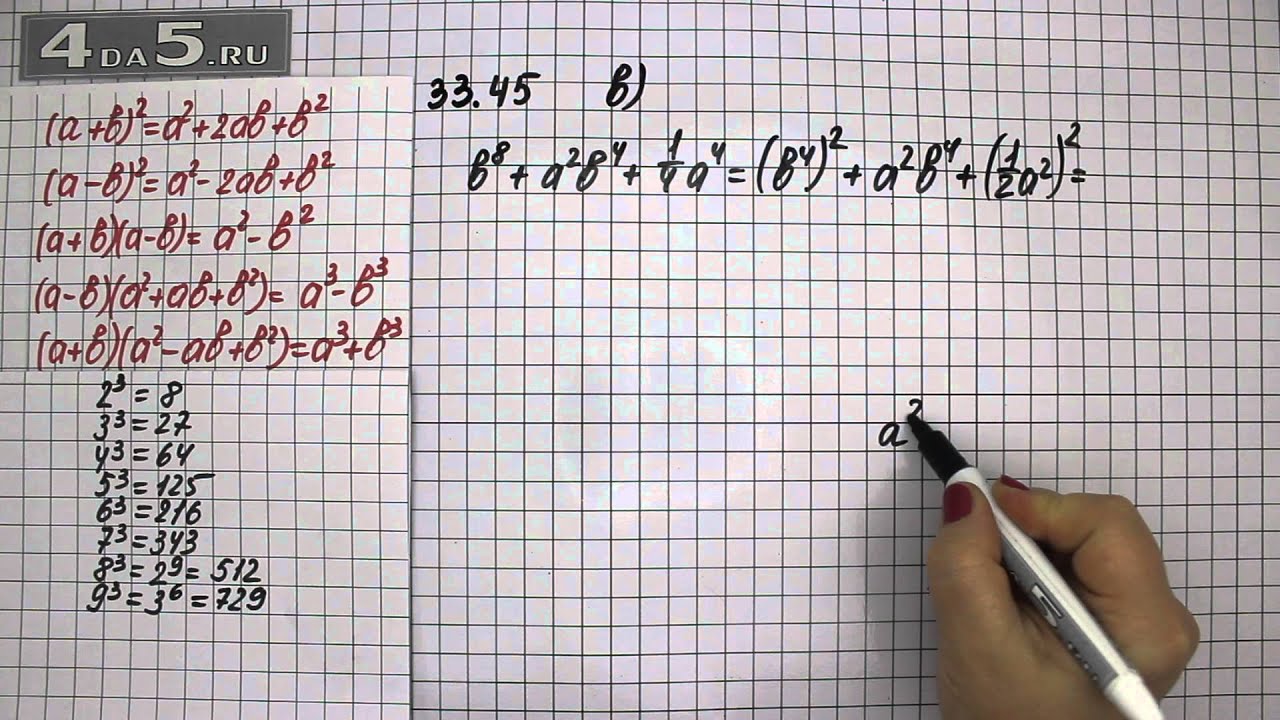 4ДА5.RU
(a+b)²=a²+2ab+b²
(a-b)²=a²-2ab+b²
(a+b)(a-b)=a²-b²
(a-b)(a²+ab+b²)=a³-b³
(a+b)(a²-ab+b²)=a³+b³
2³=8
3³=27
4³=64
5³=125
6³=216
7³=343
8³=2⁹=512
9³=3⁶=729
33.45 в)
b⁸+a²b⁴+1/4a⁴=(b⁴)²+a²b⁴+(1/2a²)²=
a²